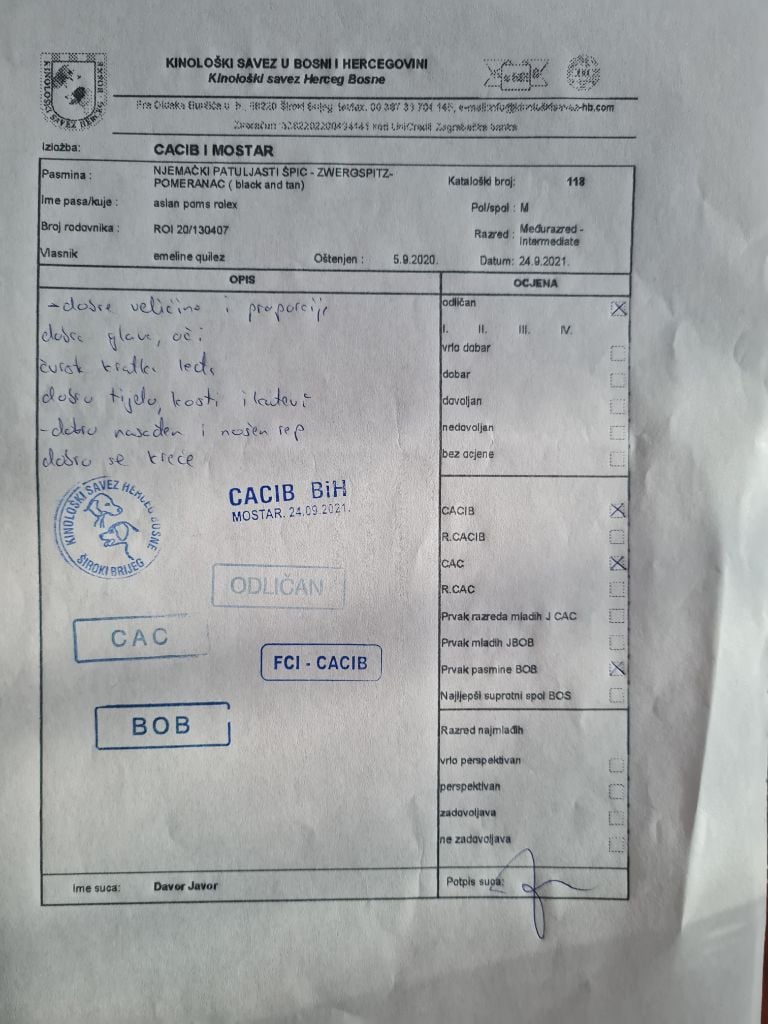 KINOLOŠKI SAVEZ U BOSNI I HERCEGOVINI
Kinološki savez Herceg Bosne
Izložba: CACIB I MOSTAR
Pasmina : NJEMAČKI PATULJASTI ŠPIC - ZWERGSPITZ-
POMERANAC ( black and tan)
Kataloški broj: 118
Ime pasa/kuje : aslan poms rolex
Pol/spol : M
Broj rodovnika : ROI 20/130407
Razred : Međurazred -
Intermediate
Vlasnik emeline quilez Oštenjen : 5.9.2020. Datum: 24.9.2021.
OPIS
- dobre veličine i proporcije
dobra glava, oči
čvrst kratka leđa
dobro tijelo, kosti i kutevi
- dobro nasađen i nošen rep
dobro se kreće
KINOLOŠKI SAVEZ HERCEG BOSNE
ŠIROKI BRIJEG
CACIB BiH
MOSTAR. 24.09.2021.
ODLIČAN
CAC
FCI - CACIB
BOB
OCJENA
odličan
I. II. III. IV.
vrlo dobar
dobar
dovoljan
nedovoljan
bez ocjene
CACIB
R.CACIB
CAC
R.CAC
Prvak razreda mladih J CAC
Prvak mladih JBOB
Prvak pasmine BOB
Najljepši suprotni spol BOS
Razred najmlađih
vrlo perspektivan
perspektivan
zadovoljava
ne zadovoljava
Ime suca: Davor Javor
Potpis suca: